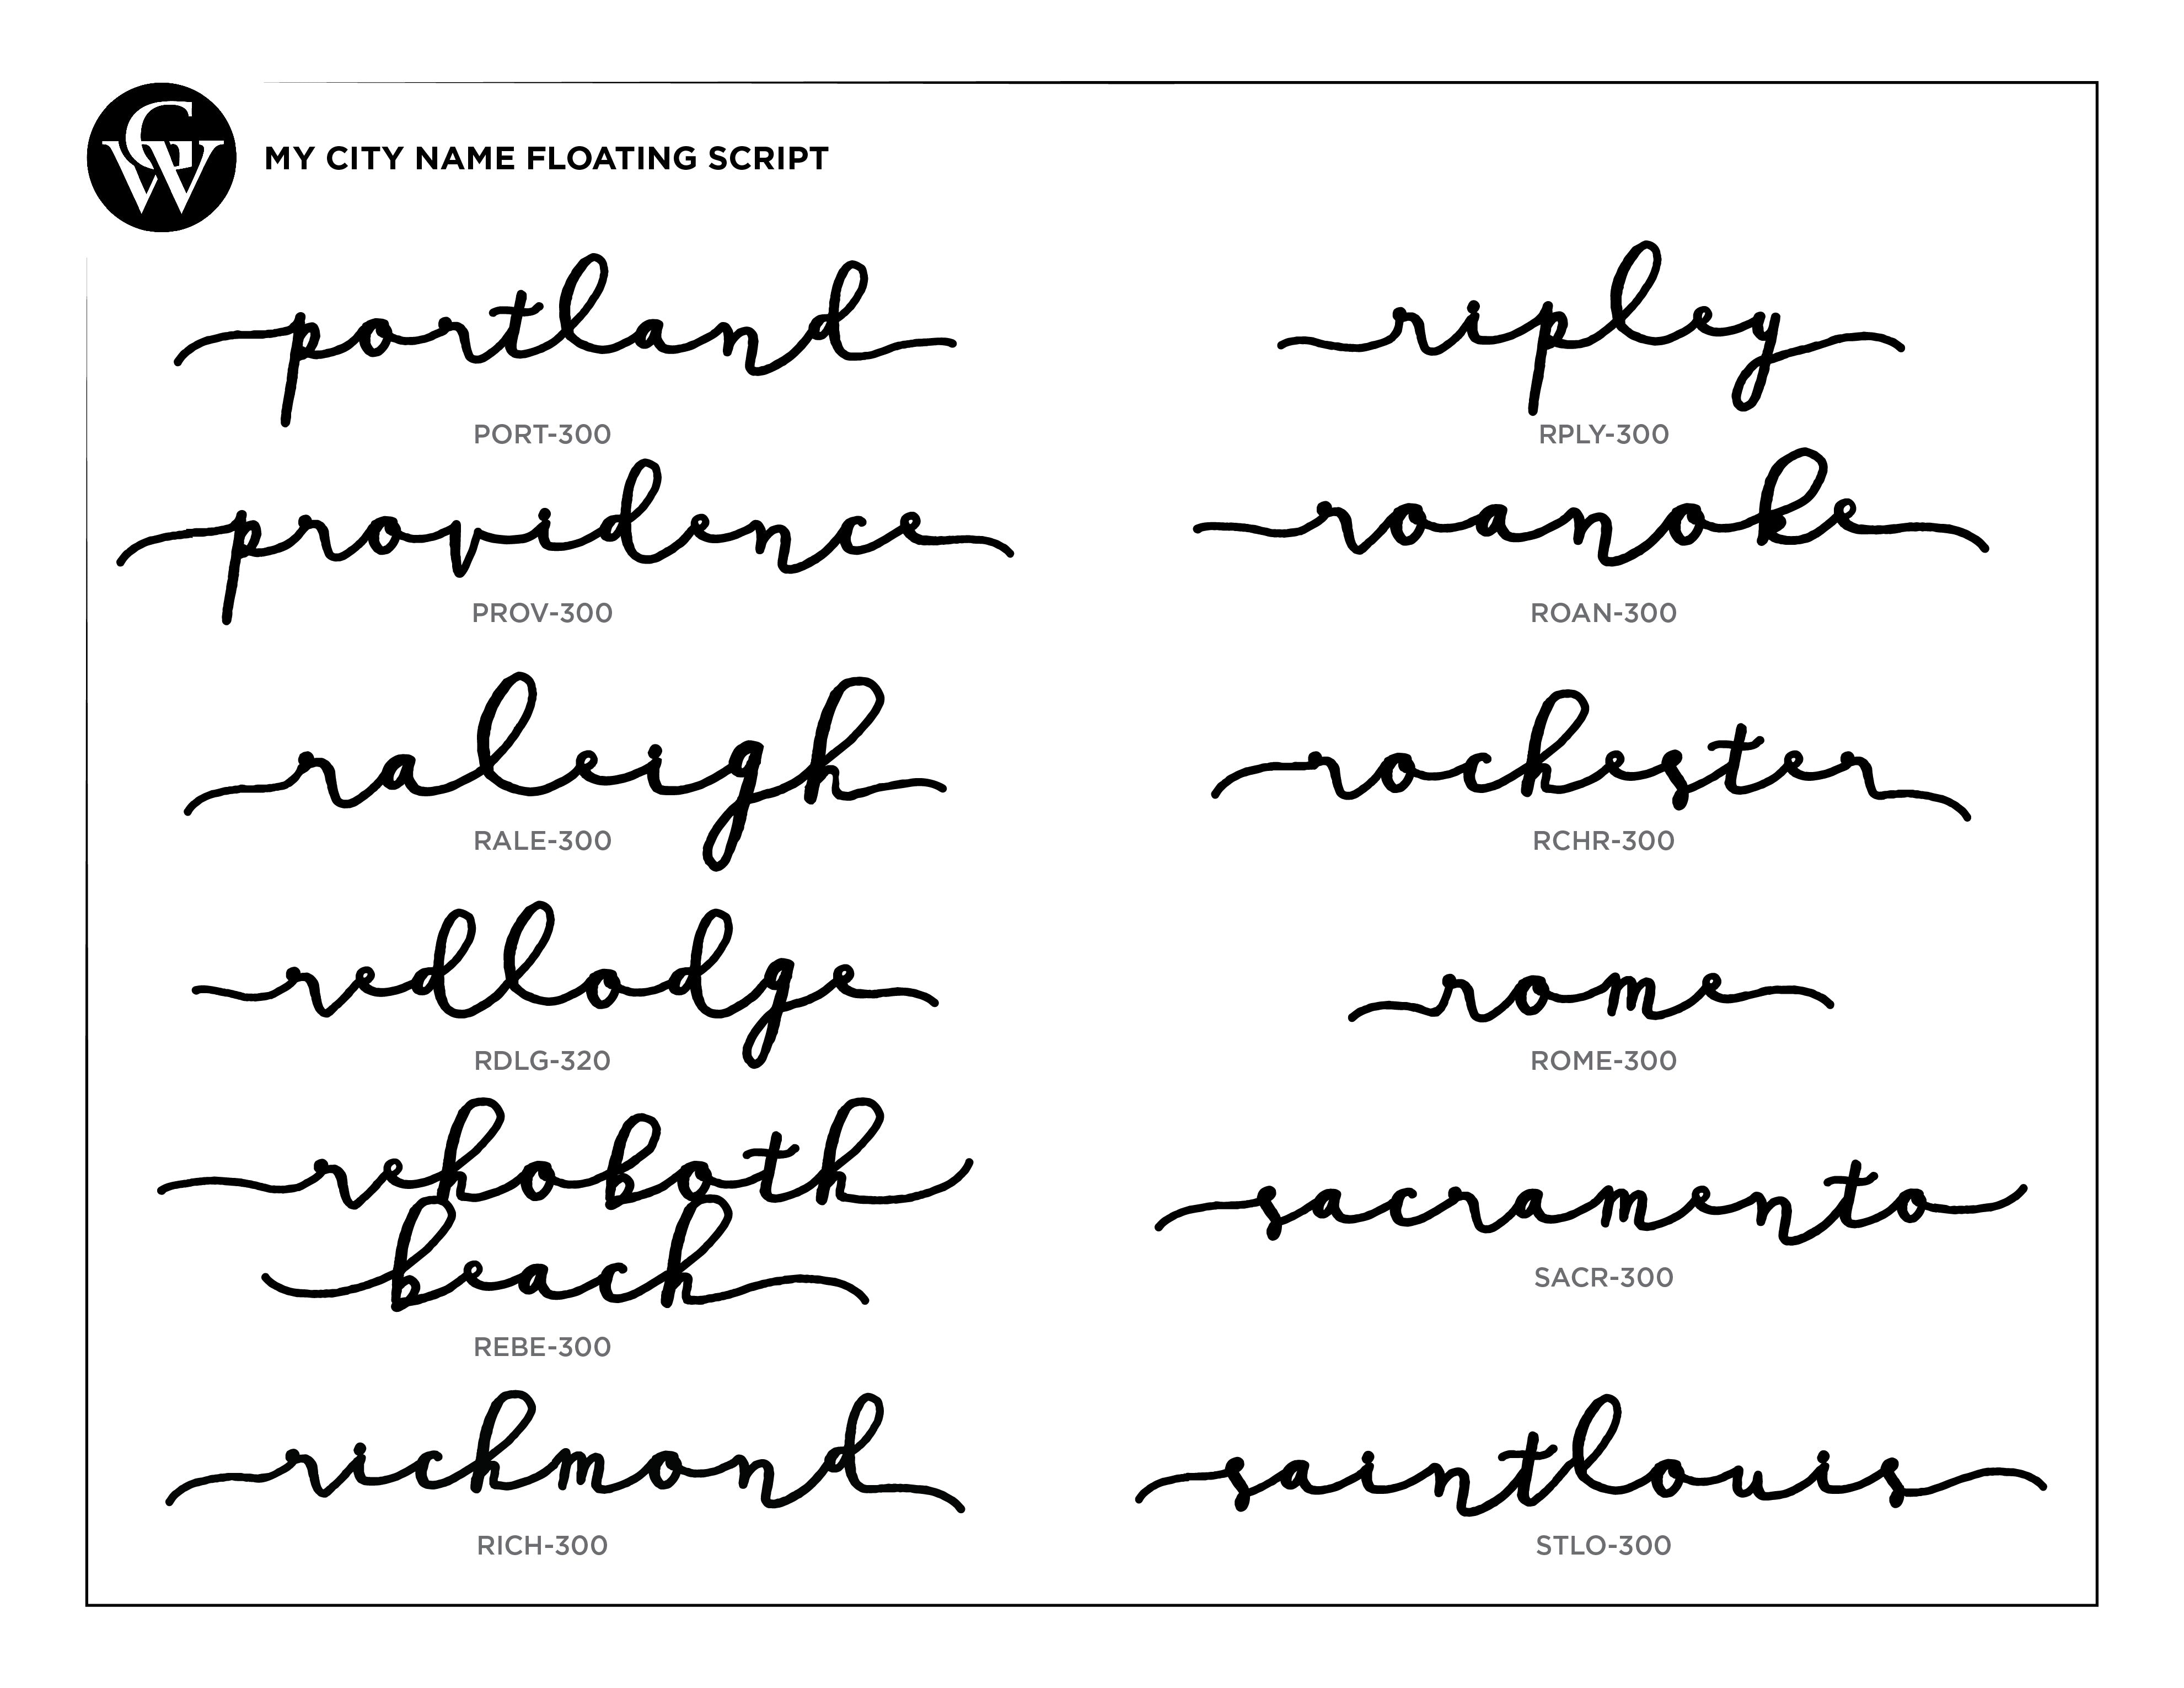 CW
MY CITY NAME FLOATING SCRIPT
portland
PORT-300
providence
PROV-300
raleigh
RALE-300
redlodge
RDLG-320
rehoboth
beach
REBE-300
richmond
RICH-300
ripley
RPLY-300
roanoke
ROAN-300
rochester
RCHR-300
rome
ROME-300
sacramento
SACR-300
saintlouis
STLO-300